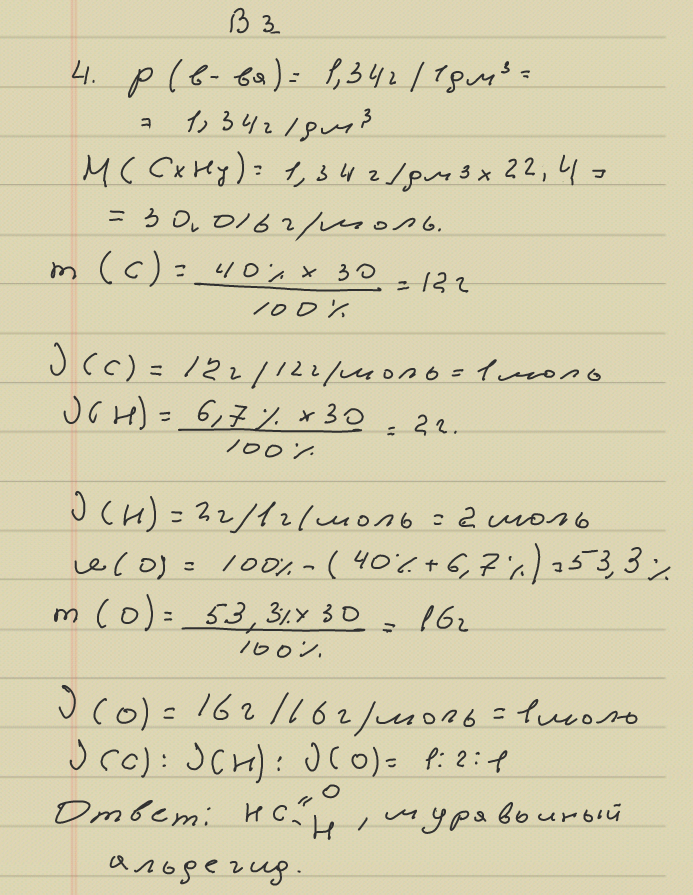 В 3
4. ρ (в-ва) = 1,34г/1дм³ =
= 1,34г/дм³
М(СxНy) = 1,34г/дм³ × 22,4 =
= 30,016г/моль.
m (C) = 40% × 30 / 100% = 12г
ν(C) = 12г/12г/моль = 1моль
ν(H) = 6,7% × 30 / 100% = 2г.
ν(H) = 2г/1г/моль = 2моль
w(O) = 100% - (40% + 6,7%) = 53,3%
m (O) = 53,3% × 30 / 100% = 16г
ν(O) = 16г/16г/моль = 1моль
ν(C) : ν(H) : ν(O) = 1:2:1
Ответ: HC=O H, муравьиный
альдегид.